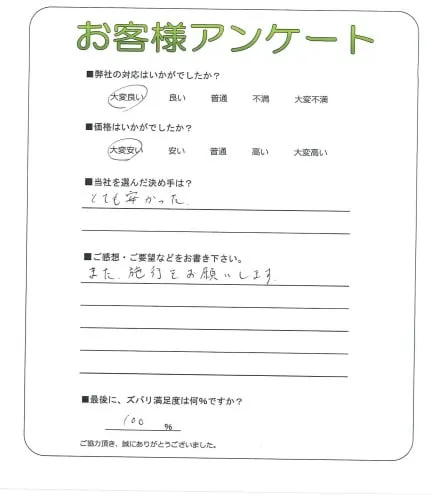 お客様アンケート
■弊社の対応はいかがでしたか？
大変良い 良い 普通 不満 大変不満
■価格はいかがでしたか？
大変安い 安い 普通 高い 大変高い
■当社を選んだ決め手は？
とても安かった.
■ご感想・ご要望などをお書き下さい。
また、施行をお願いします.
■最後に、ズバリ満足度は何％ですか？
100 %
ご協力頂き、誠にありがとうございました。